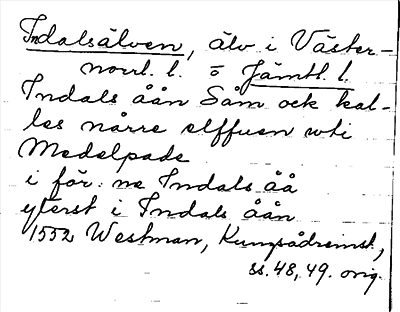 Indalsälven, älv i Väster-
norrl. l. o Jämtl. l.
Indals åån Såm ock kal-
les nårre elffuen uti
Medelpade
i för: ne Indals åå
yterst i Indals åån
1552 Westman,
ss. 48, 49. orig.